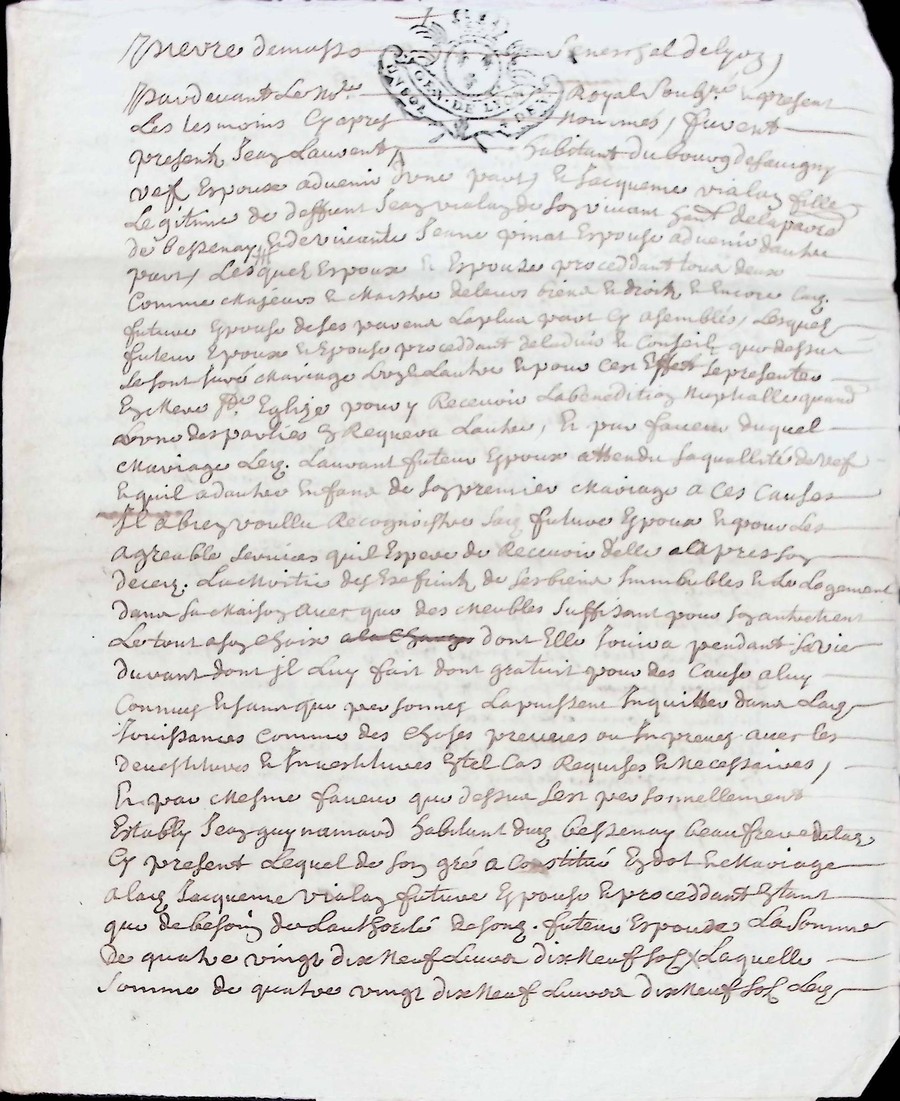 Pierre demasso Seneschal de Lyon
GEN. DE LYON
Pardevant Le No.re Royal Soubz.né En present
Les tesmoins Cy apres nommés, furent
present Jean Laurent habitant du bourg de Savigny
vef Espoux advenir d'une part, Et Jacqueme vialan fille
Legitime de deffunt Jean vialan de son vivant hant. de la parr.
de bessenay Et de vivante Jeane Espouse advenir d'autre
part, Lesquelz Espoux Et Espouze proceddant tous deux
Comme Majeurs Et Maistre de leurs biens Et droitz Et Encore Lad.
future Espouse de ses parens La plus part Cy asemblés, Lesquelz
futeur Espoux Et Espouse proceddant de Et Conseil que dessus
Se sont Juré Mariage L'un L'autre Et pour Cest Effect Se presenter
En Mere Ste. Eglize pour y Recevoir La benedition Nuptialle quand
L'une des parties En Requera L'autre, Et par faveur duquel
Mariage Led. Laurant futeur Espoux attendu Sa quallité de vef
Et quil a d'autre Enfans de son premier Mariage a Ces Causes
Il a bien voullu Recognoistre Sad. future Espoux Et pour Les
agreable Services quil Espere de Recevoir d'elle a la pres son
deced. La Moitié des de Ses biens Immubles Et Le Logement
dans Sa Maison avec que des Meubles Suffisant pour Son antretient
Le tout a son Choix a la Charge dont Elle Jouira pendant Sa vie
durant dont Il Luy fait dont gratuit pour des Cause a luy
Connues Et sans que personnes La puissent Inquitter dans Lad.
Jouissances Comme des Choses precises ou Impreuz. avec les
devestitures Et Investitures En tel Cas Requises Et Necessaires,
Et par Mesme faveur que dessus Sest personnellement
Estably Jean guynamard habitant dud. bessenay beaufrere de lad.
Cy present Lequel de son gré a Constitué En dot Et Mariage
a lad. Jacqueme vialan future Espouse Et proceddant En tant
que de besoin de L'authorité de sond. futeur Espouze La Somme
De quatre vingt dix Neuf Livres dix Neuf Solz Laquelle
Somme de quatre vingt dix Neuf Livres dix Neuf Solz Led.